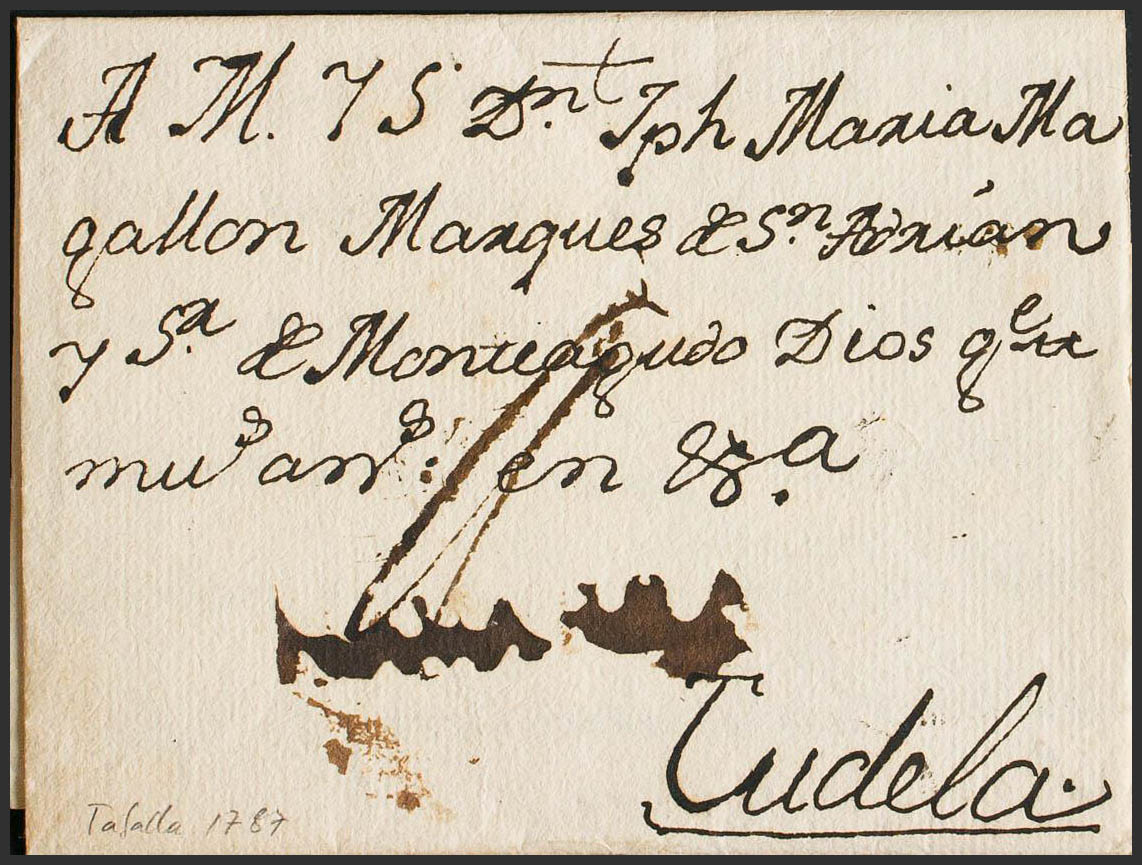 A M. Y S.r Dn. Jph Maria Ma
gallon Marques de Sn. Adrián
y Sa. de Monteagudo Dios ge
mus. anns. en
Tudela.
Tafalla 1787